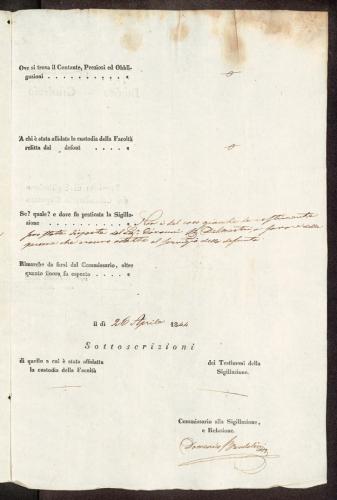 Ove si trova il Contante, Preziosi ed Obbli-
gazioni . . . . . . . . . .
A chi è stata affidata la custodia della Facoltà
relitta dal defont . . . . . .
Se? quale? e dove fu praticata la Sigilla-
zione . . . . . . . . . . Non è del caso giacchè le
sono state disposte dal Giovanni a favore delle
persone che erano al servizio della defunta
Rimarche da farsi dal Commissario, oltre
quanto finora fu esposto . . . . . .
il dì 26 Aprile 1844
Sottoscrizioni
di quello a cui è stata affidata
la custodia della Facoltà
dei Testimonj della
Sigillazione.
Commissario alla Sigillazione,
e Relazione.
Domenico